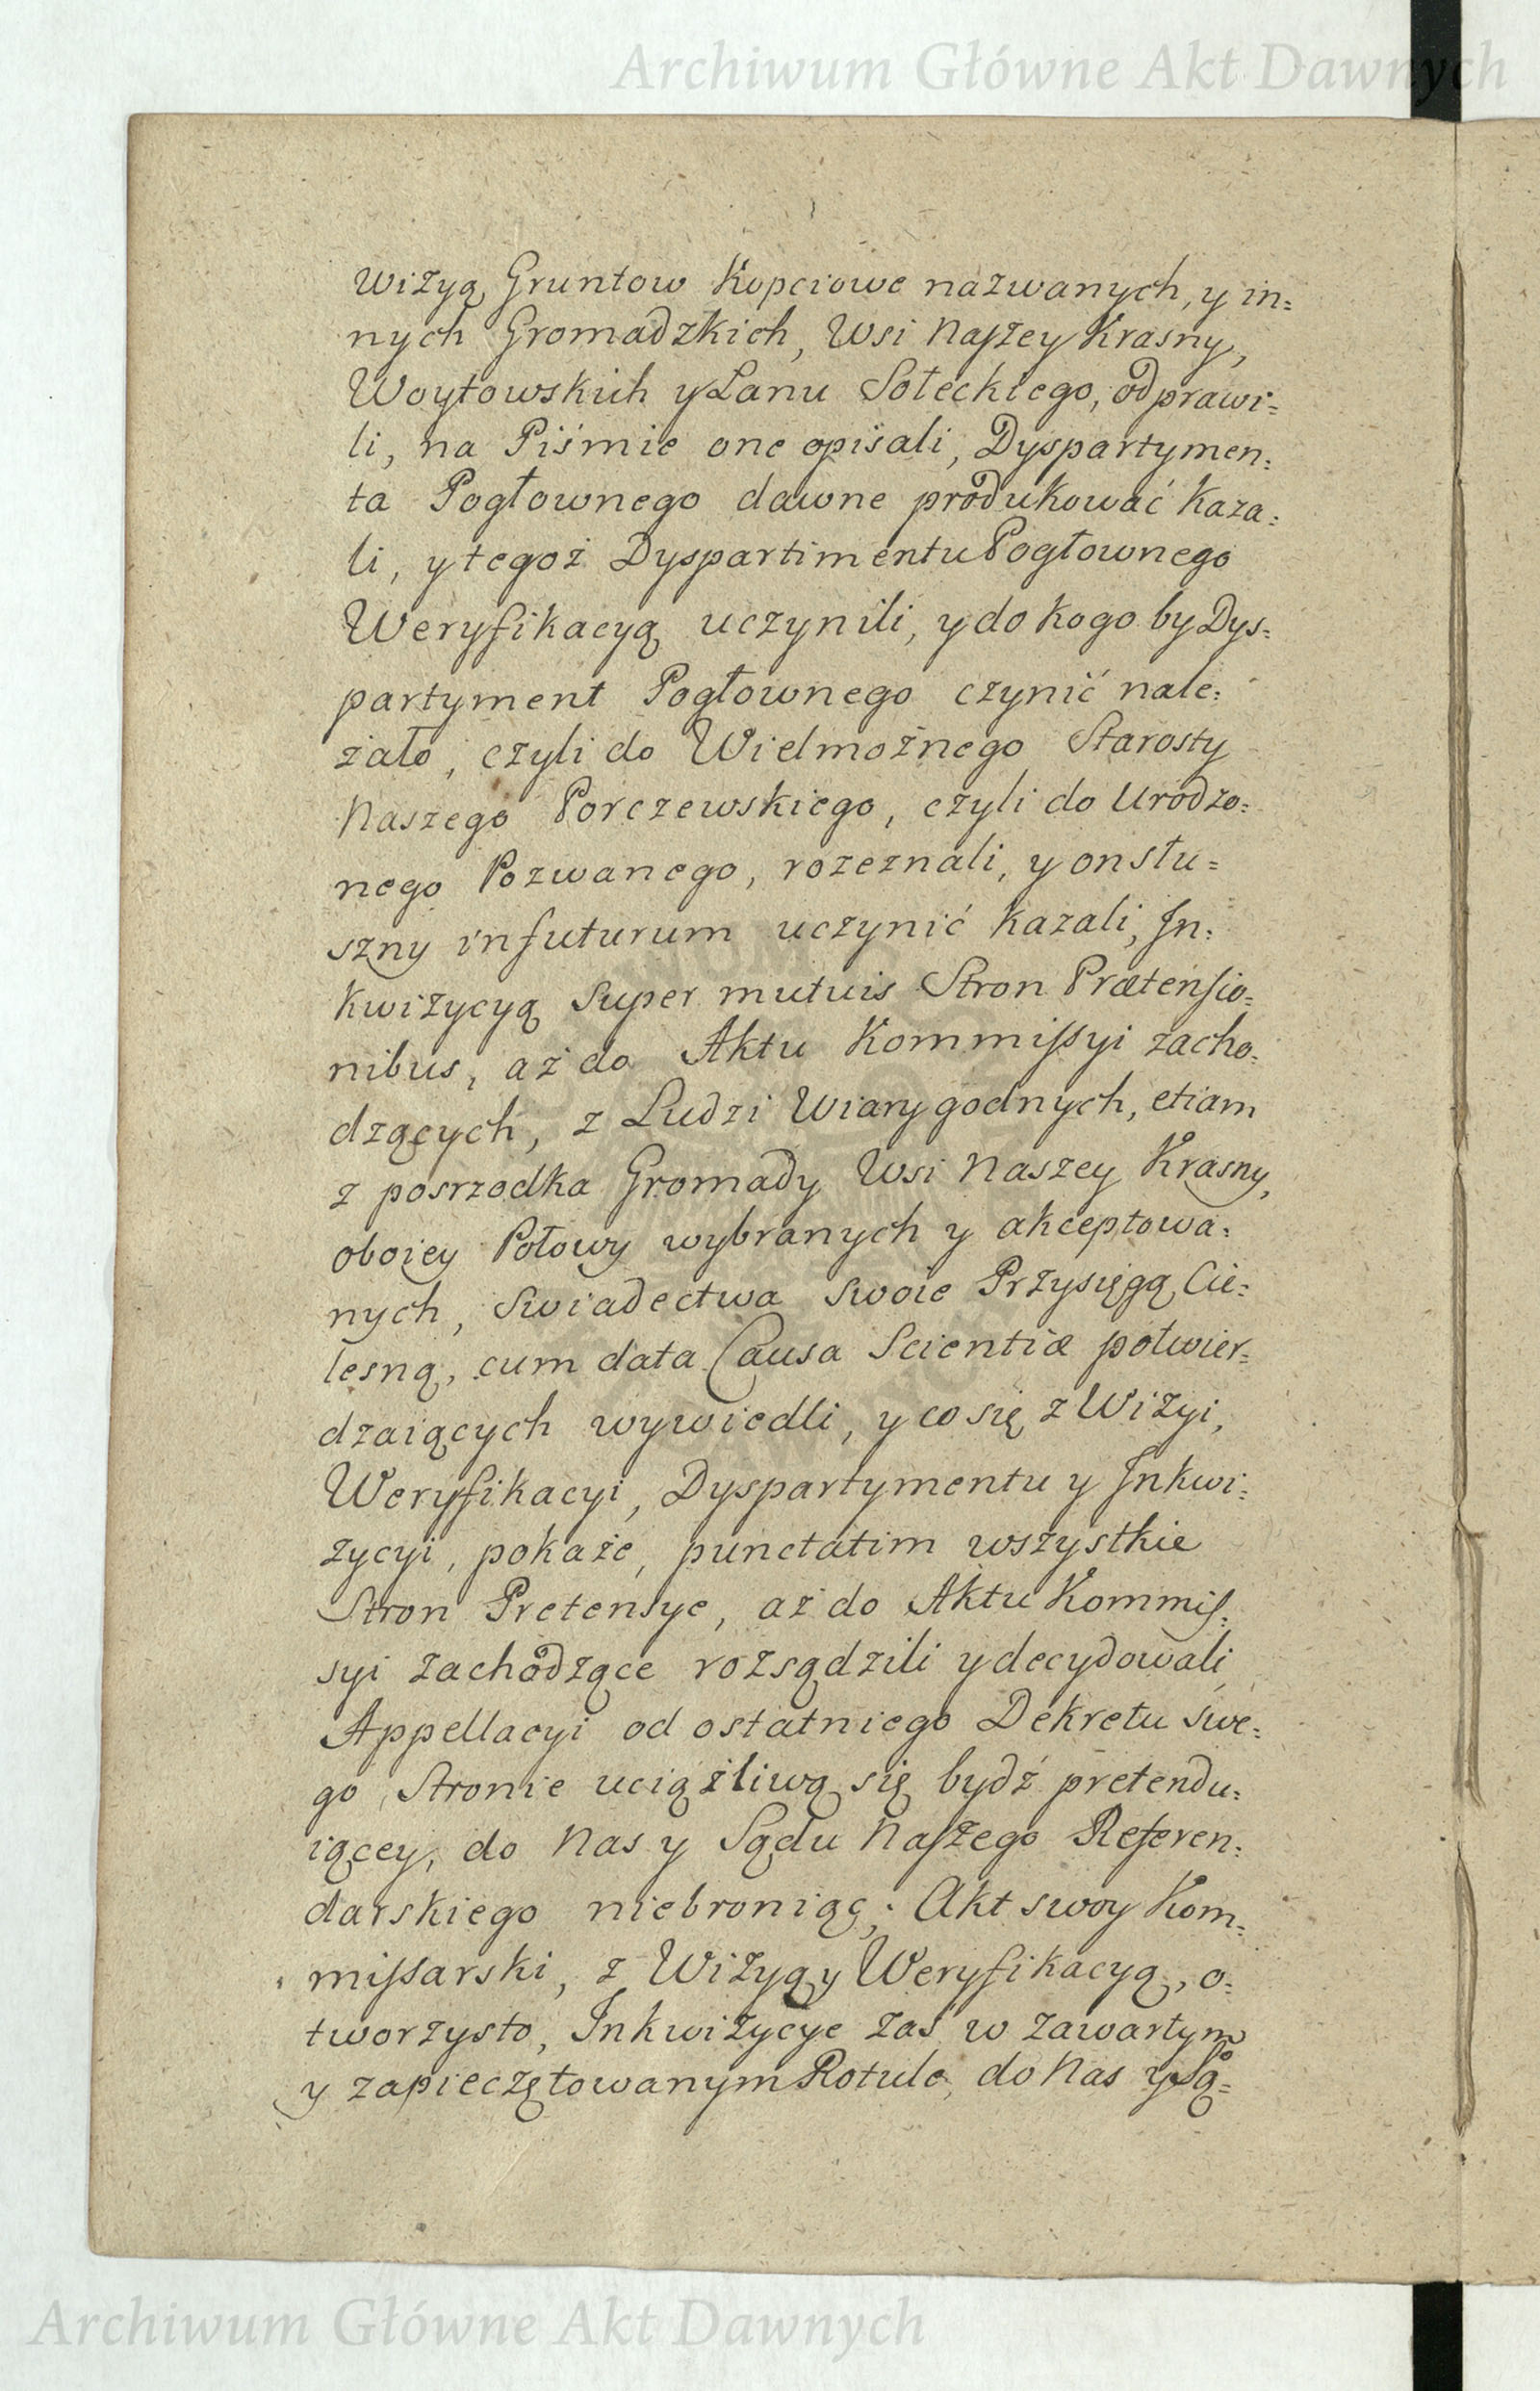 Archiwum Główne Akt Dawnych
Wizyą Gruntow Kopciowe nazwanych, y in=
nych Gromadzkich, Wsi Naszey Krasny,
Woytowskich y Lanu Sołeckiego, odprawi=
li, na Piśmie one opisali, Dyspartymen=
ta Pogłownego dawne produkować kaza=
li, y tegoż Dyspartimentu Pogłownego
Weryfikacyą uczynili, y do kogo by Dys=
partyment Pogłownego czynić nale=
żało, czyli do Wielmożnego Starosty
Naszego Porczewskiego, czyli do Urodzo=
nego Pozwanego, rozeznali, y on słu=
szny in futurum uczynić kazali, In=
kwizycyą super mutuis Stron Prætensio=
nibus, aż do Aktu Kommissyi zacho=
dzących, z Ludzi Wiary godnych, etiam
z posrzodka Gromady Wsi Naszey Krasny,
oboiey Połowy wybranych y akceptowa=
nych, Swiadectwa swoie Przysięgą Cie=
lesną, cum data Causa Scientiæ potwier=
dzaiących wywiedli, y co się z Wizyi,
Weryfikacyi, Dyspartymentu y Inkwi=
zycyi, pokaże, punctatim wszystkie
Stron Pretensye, aż do Aktu Kommis=
syi zachodzące rozsądzili y decydowali
Appellacyi od ostatniego Dekretu swe=
go, Stronie uciążliwą się bydź pretendu=
iącey, do Nas y Sądu Naszego Referen=
darskiego niebroniąc; Akt swoy Kom=
missarski, z Wizyą y Weryfikacyą, o=
tworzysto, Inkwizycye zaś w zawartym
y zapieczętowanym Rotule, do Nas y Są=
Archiwum Główne Akt Dawnych